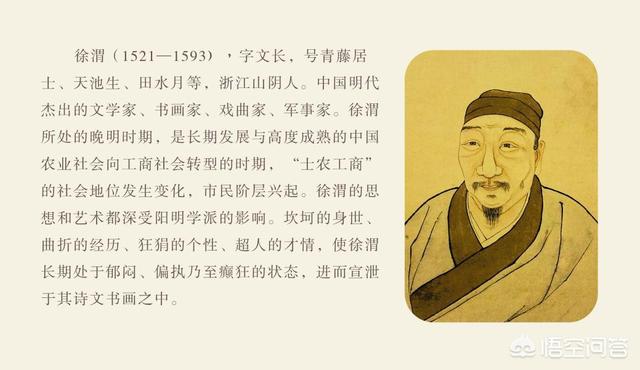 徐渭（1521—1593），字文长，号青藤居
士、天池生、田水月等，浙江山阴人。中国明代
杰出的文学家、书画家、戏曲家、军事家。徐渭
所处的晚明时期，是长期发展与高度成熟的中国
农业社会向工商社会转型的时期，“士农工商”
的社会地位发生变化，市民阶层兴起。徐渭的思
想和艺术都深受阳明学派的影响。坎坷的身世、
曲折的经历、狂狷的个性、超人的才情，使徐渭
长期处于郁闷、偏执乃至癫狂的状态，进而宣泄
于其诗文书画之中。
悟空问答